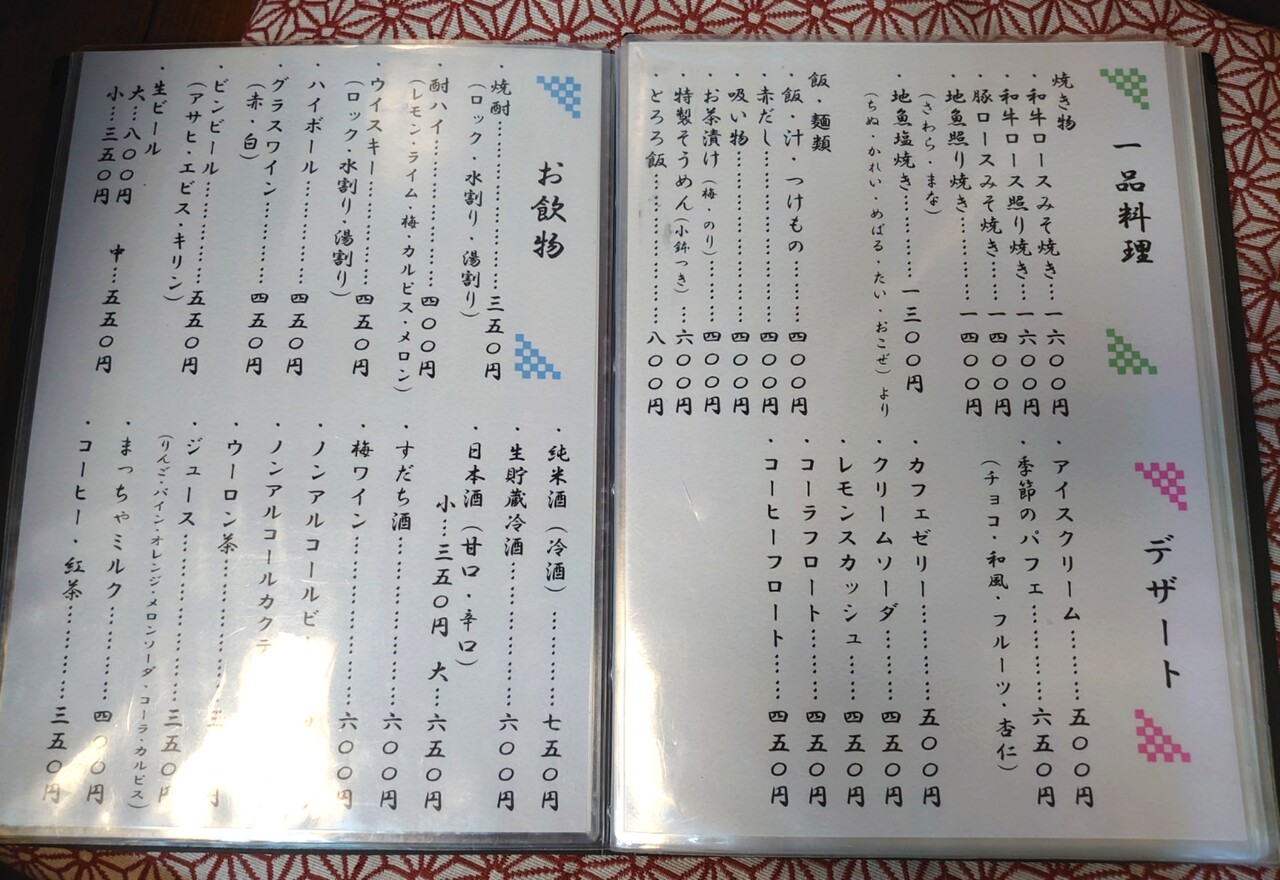 一品料理
焼き物
・和牛ロースみそ焼き…一六〇〇円
・和牛ロース照り焼き…一六〇〇円
・豚ロースみそ焼き………一四〇〇円
・地魚照り焼き………一四〇〇円
（さわら・まな）
・地魚塩焼き………一三〇〇円
（ちぬ・かれい・めばる・たい・おこぜ）より
飯・麺類
・飯・汁・つけもの………四〇〇円
・赤だし………四〇〇円
・吸い物………四〇〇円
・お茶漬け（梅・のり）………四〇〇円
・特製そうめん（小鉢つき）…六〇〇円
・とろろ飯………八〇〇円
デザート
・アイスクリーム………五〇〇円
・季節のパフェ………六五〇円
（チョコ・和風・フルーツ・杏仁）
・カフェゼリー………五〇〇円
・クリームソーダ………四五〇円
・レモンスカッシュ………四五〇円
・コーラフロート………四五〇円
・コーヒーフロート………四五〇円
お飲物
・焼酎………三五〇円
（ロック・水割り・湯割り）
・酎ハイ………四〇〇円
（レモン・ライム・梅・カルピス・メロン）
・ウイスキー………四五〇円
（ロック・水割り・湯割り）
・ハイボール………四五〇円
・グラスワイン………四五〇円
（赤・白）
・ビンビール………五五〇円
（アサヒ・エビス・キリン）
・生ビール
大…八〇〇円　中…五五〇円
小…三五〇円
・純米酒（冷酒）………七五〇円
・生貯蔵冷酒………六〇〇円
・日本酒（甘口・辛口）
小…三五〇円　大…六五〇円
・すだち酒………六〇〇円
・梅ワイン………六〇〇円
・ノンアルコールビ
・ノンアルコールカクテ
・ウーロン茶………三 円
・ジュース………三五〇円
（りんご・パイン・オレンジ・メロンソーダ・コーラ・カルピス）
・まっちゃミルク………四〇〇円
・コーヒー・紅茶………三五〇円